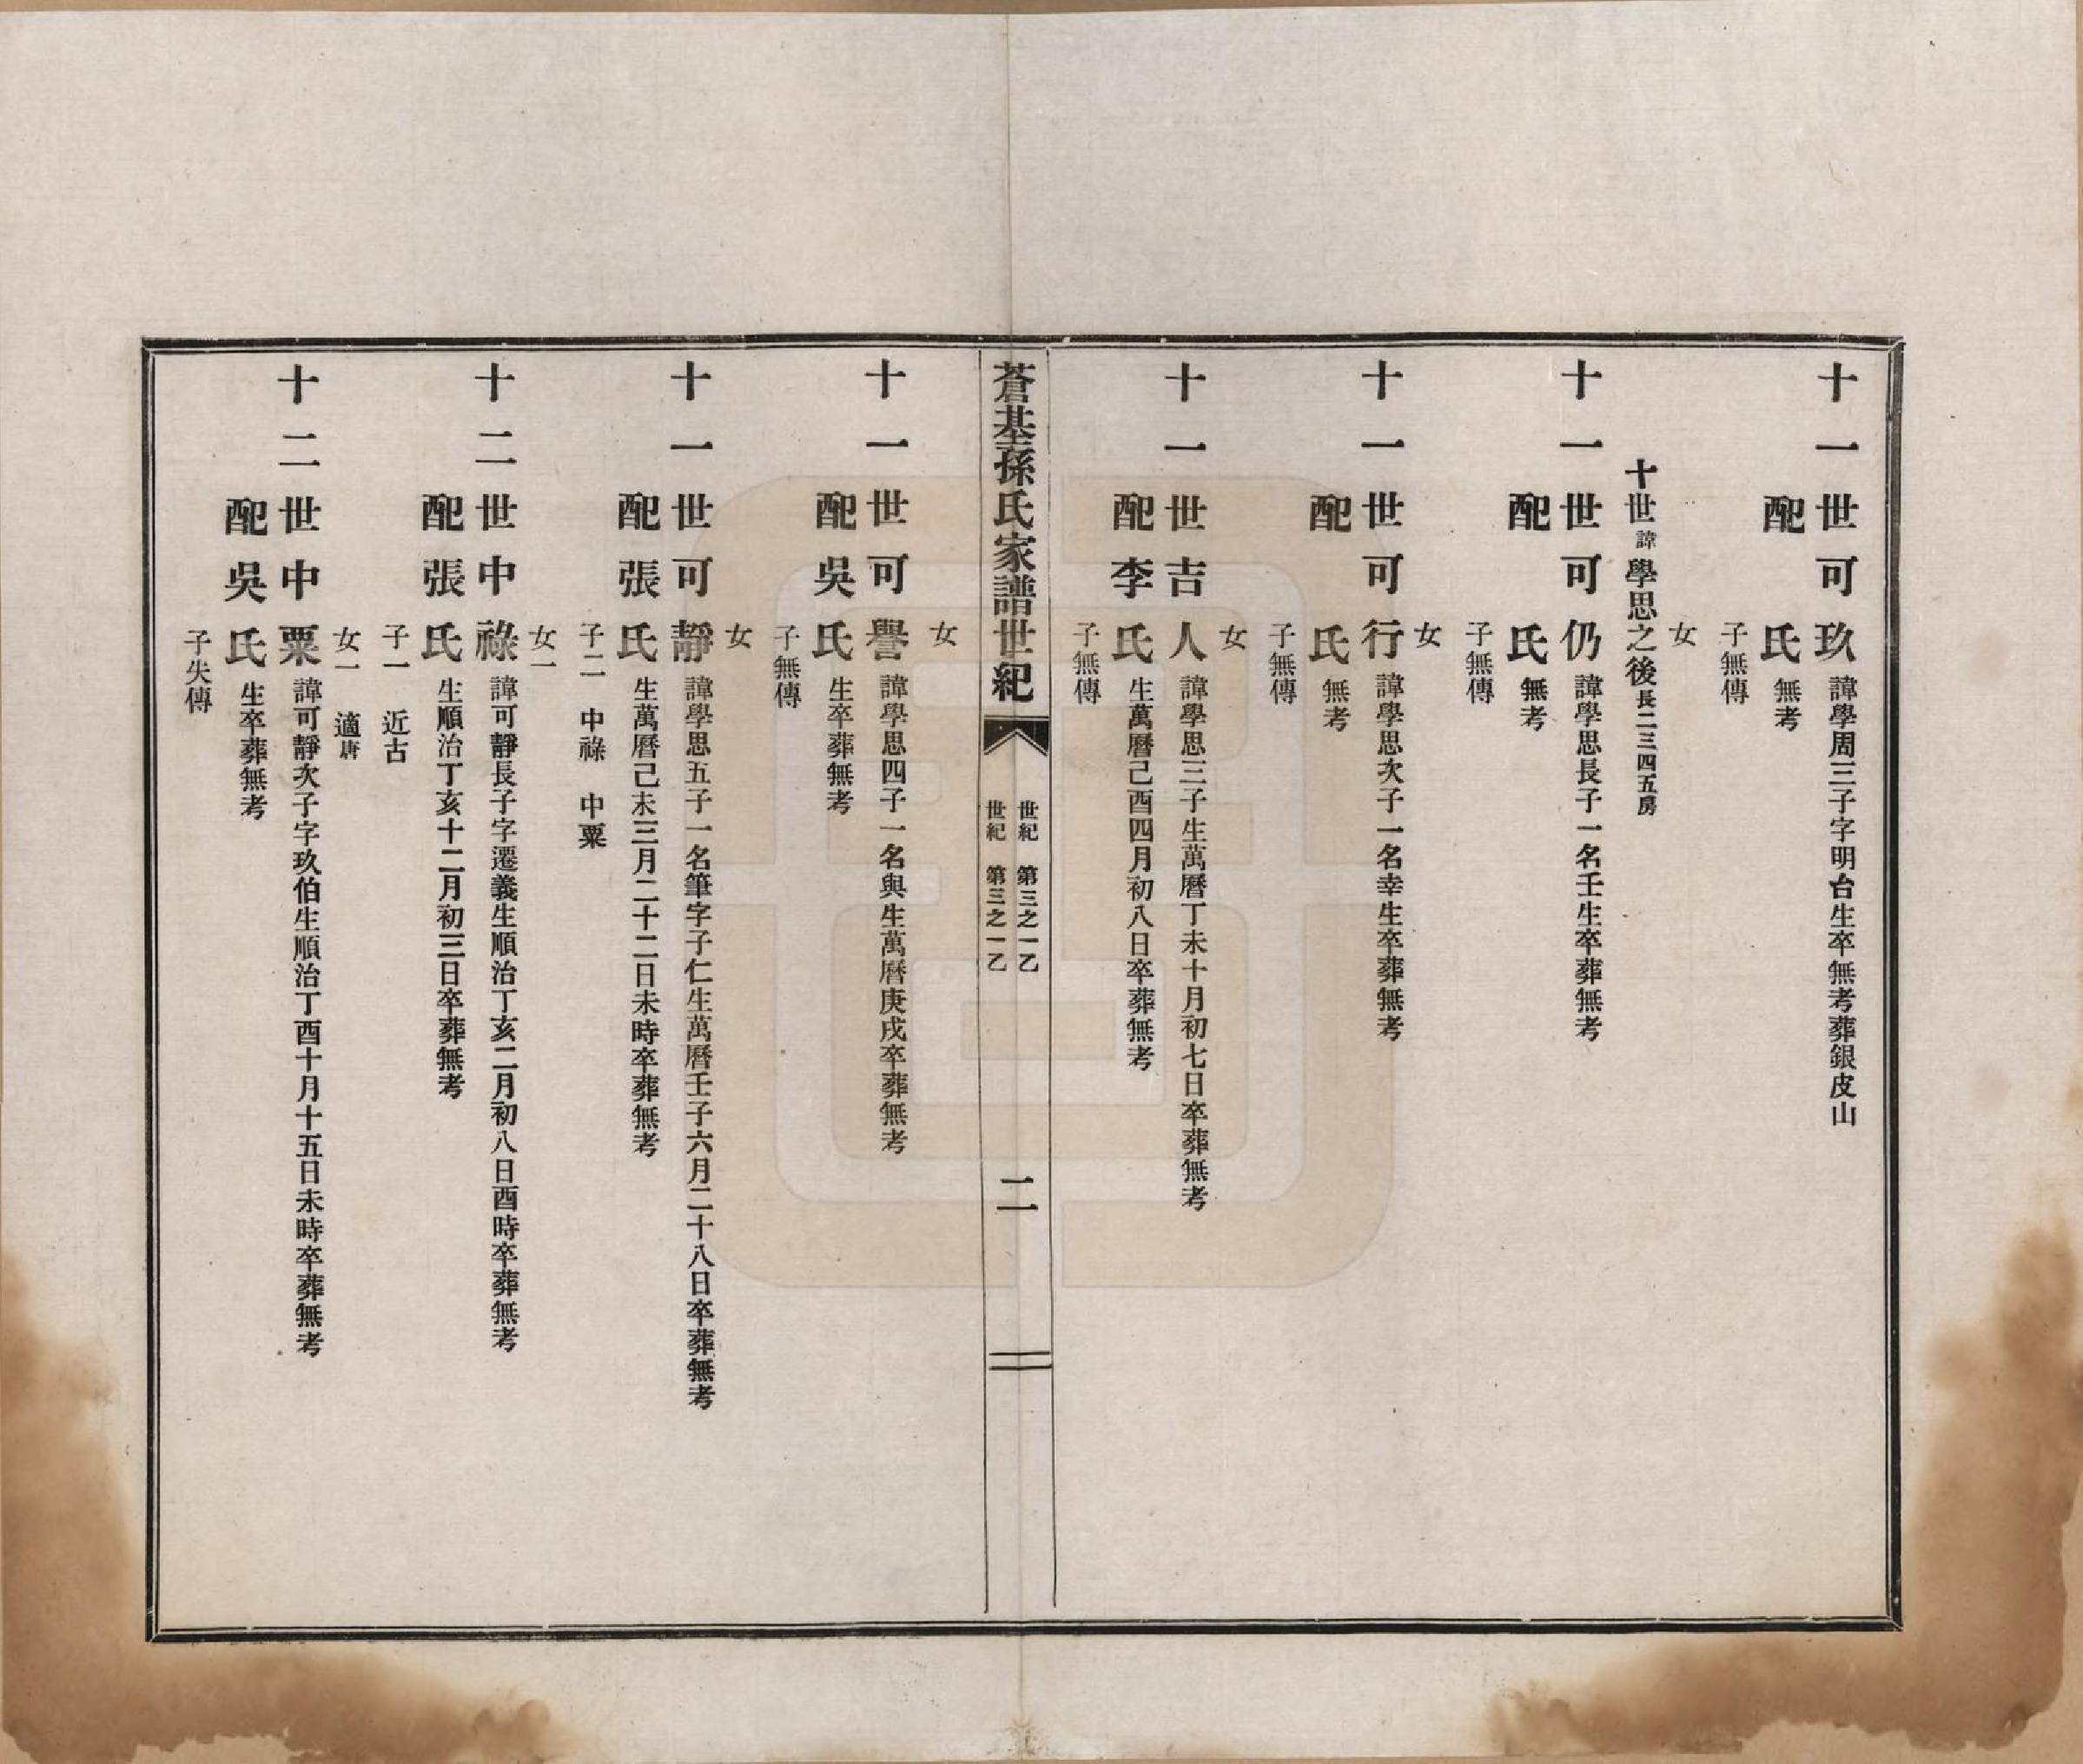 十一世可玖諱學周三子字明台生卒無考葬銀皮山
配　氏無考
子無傳
女
十世諱學思之後長二三四五房
十一世可仍諱學思長子一名壬生卒葬無考
配　氏無考
子無傳
女
十一世可行諱學思次子一名幸生卒葬無考
配　氏無考
子無傳
女
十一世吉人諱學思三子生萬曆丁未十月初七日卒葬無考
配李氏生萬曆己酉四月初八日卒葬無考
子無傳
蒼基孫氏家譜世紀
世紀　第三之一乙
世紀　第三之一乙
二
女
十一世可譽諱學思四子一名與生萬曆庚戌卒葬無考
配吳氏生卒葬無考
子無傳
女
十一世可靜諱學思五子一名筆字子仁生萬曆壬子六月二十八日卒葬無考
配張氏生萬曆己未三月二十二日未時卒葬無考
子二　中祿　中粟
女一
十二世中祿諱可靜長子字遷義生順治丁亥二月初八日酉時卒葬無考
配張氏生順治丁亥十二月初三日卒葬無考
子一　近古
女一　適唐
十二世中粟諱可靜次子字玖伯生順治丁酉十月十五日未時卒葬無考
配吳氏生卒葬無考
子失傳